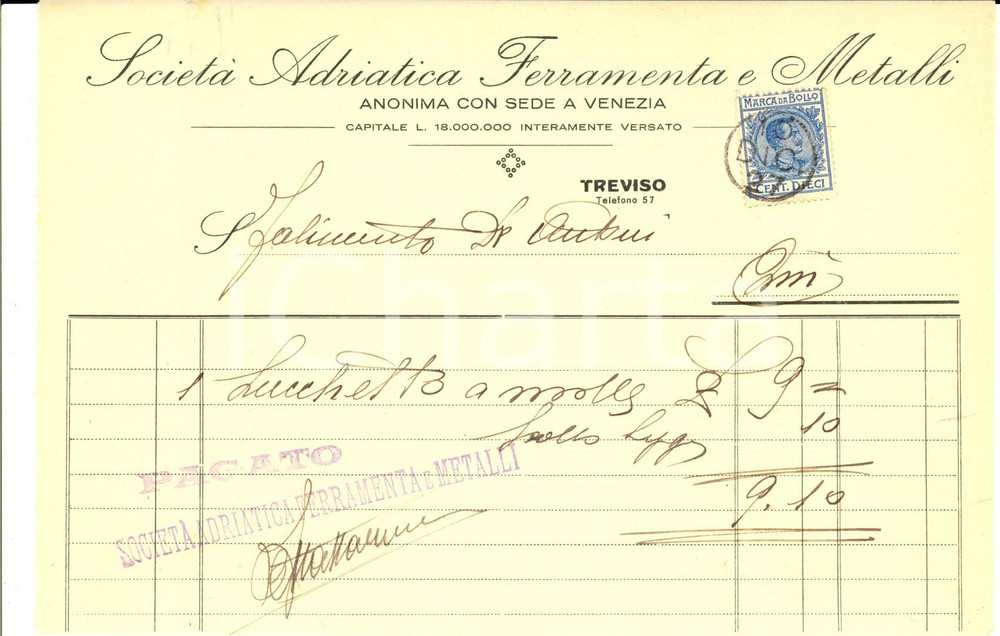 Società Adriatica Ferramenta e Metalli
ANONIMA CON SEDE A VENEZIA
CAPITALE L. 18.000.000 INTERAMENTE VERSATO
MARCA DA BOLLO
DIC
27
CENT. DIECI
TREVISO
Telefono 57
S
iCharta
1 Lucchetto a molla L 9 =
bollo 10
9.10
PAGATO
SOCIETÀ ADRIATICA FERRAMENTA E METALLI